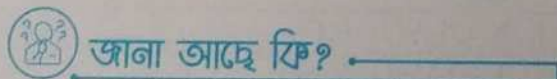 জানা আছে কি?